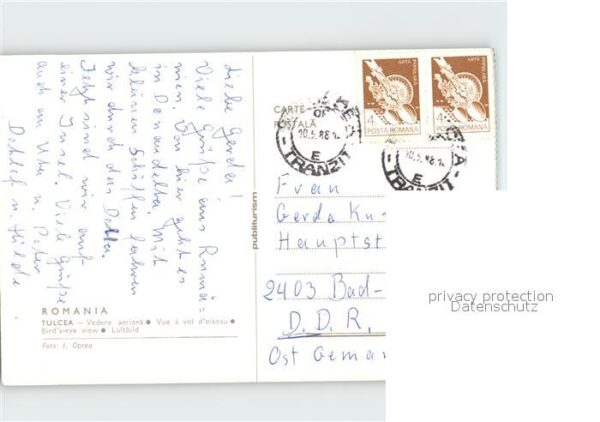 Liebe Gerda!
Viele Grüße aus Rumä=
nien. Von hier geht es
in Donaudelta. Mit
kleinen Schiffen fahren
wir durch das Delta.
Jetzt sind wir auf
einer Insel. Viele Grüße
auch an Uta u. Peter
Detlef u. Hilde
ROMANIA
TULCEA – Vedere aeriană ● Vue à vol d'oiseau ●
Bird's-eye view ● Luftbild
Foto: I. Oprea
publiturism
CARTE
POȘTALĂ
ARTA
POPULARĂ
4
POSTA ROMANA
ARTA
POPULARĂ
4
POSTA ROMANA
OF
10.5.88.
E
TRANZIT
10.5.88.
E
TRANZIT
Frau
Gerda
Hauptst
2403 Bad-
D.D.R.
Ost
privacy protection
Datenschutz